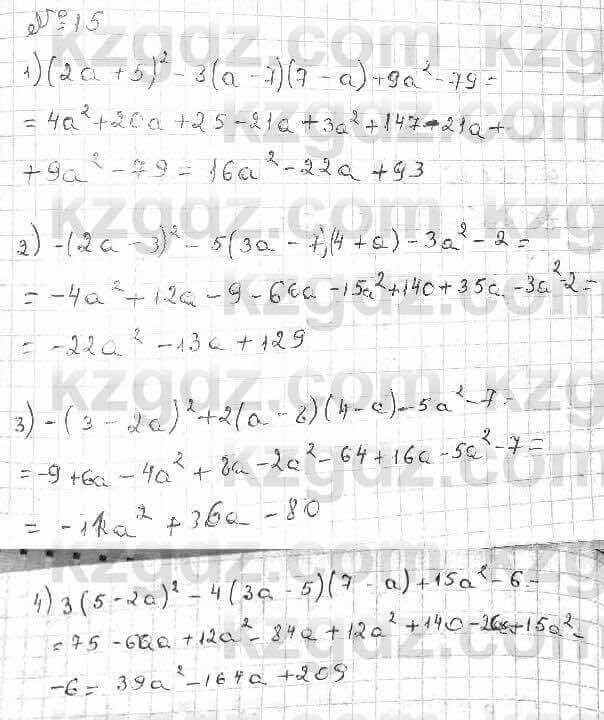 №15
1) (2a + 5)² - 3(a - 7)(7 - a) + 9a² - 79 =
= 4a² + 20a + 25 - 21a + 3a² + 147 - 21a +
+ 9a² - 79 = 16a² - 22a + 93
2) -(2a - 3)² - 5(3a - 7)(4 + a) - 3a² - 2 =
= -4a² + 12a - 9 - 60a - 15a² + 140 + 35a - 3a² - 2 =
= -22a² - 13a + 129
3) -(3 - 2a)² + 2(a - 8)(4 - a) - 5a² - 7 =
= -9 + 6a - 4a² + 8a - 2a² - 64 + 16a - 5a² - 7 =
= -11a² + 36a - 80
4) 3(5 - 2a)² - 4(3a - 5)(7 - a) + 15a² - 6 =
= 75 - 60a + 12a² - 84a + 12a² + 140 - 20a + 15a² -
- 6 = 39a² - 164a + 209
kzgdz.com